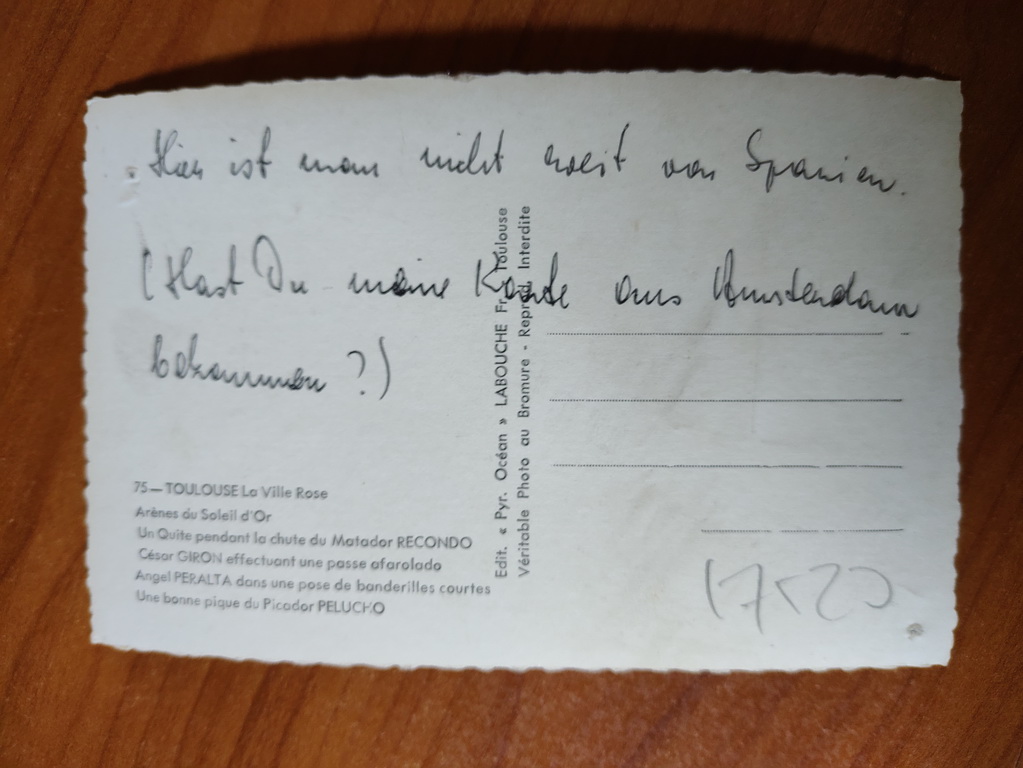 Hier ist man nicht weit von Spanien.
(Hast Du meine Karte aus Amsterdam
bekommen ?)
75 — TOULOUSE La Ville Rose
Arènes du Soleil d'Or
Un Quite pendant la chute du Matador RECONDO
César GIRON effectuant une passe afarolado
Angel PERALTA dans une pose de banderilles courtes
Une bonne pique du Picador PELUCHO
Edit. « Pyr. Océan » LABOUCHE Fr. Toulouse
Véritable Photo au Bromure - Reprod. Interdite